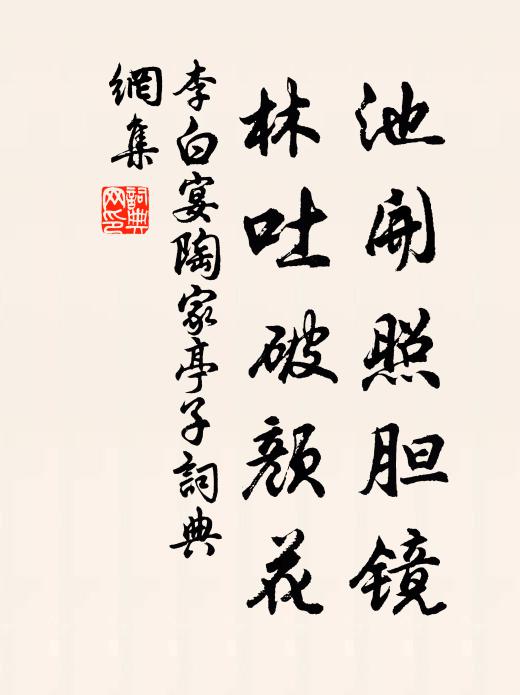 池开照胆镜
林吐破颜花
李白宴陶家亭子詞典
網集
詞典
网印